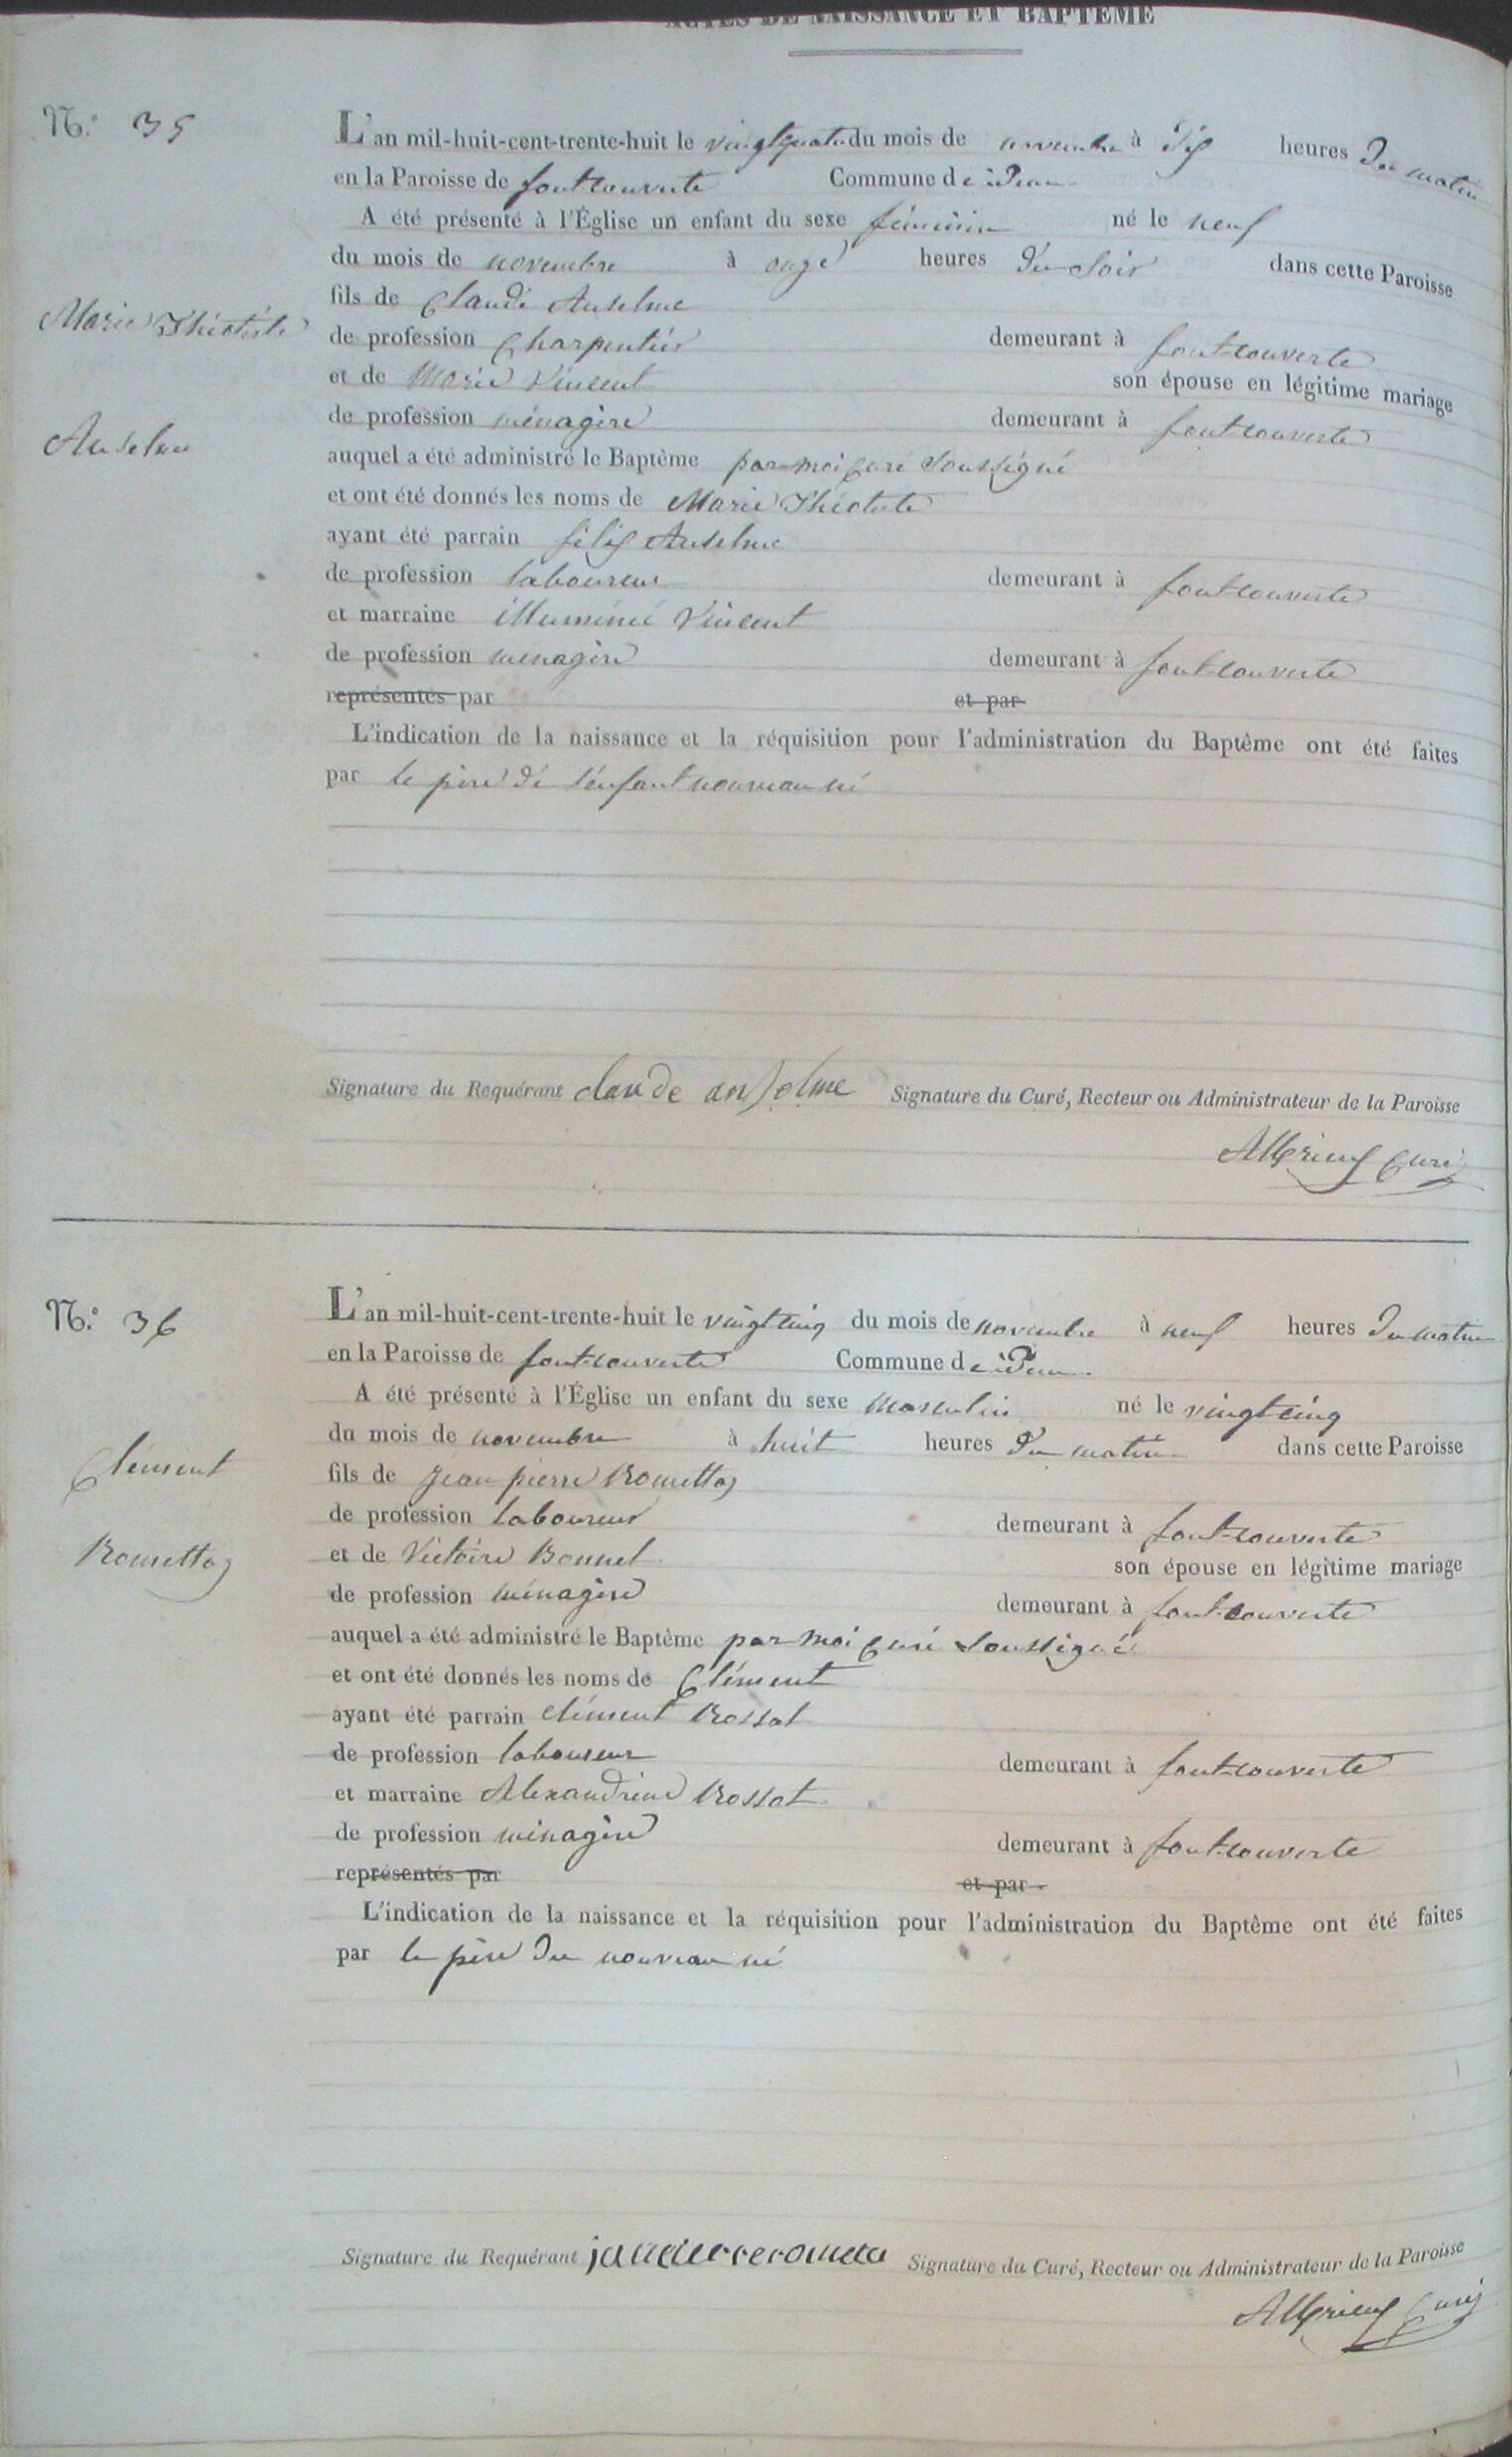 ACTES DE NAISSANCE ET BAPTÊME
N.° 35
L'an mil-huit-cent-trente-huit le vingtquatre du mois de novembre à dix heures du matin
en la Paroisse de fontcouverte Commune de idem
A été présenté à l'Église un enfant du sexe féminin né le neuf
du mois de novembre à onze heures du soir dans cette Paroisse
fils de Claude Anselme
Marie Théotiste
de profession Charpentier demeurant à fontcouverte
et de Marie Vincent son épouse en légitime mariage
de profession ménagère demeurant à fontcouverte
Anselme
auquel a été administré le Baptême par moi Curé soussigné
et ont été donnés les noms de Marie Théotiste
ayant été parrain félix Anselme
de profession laboureur demeurant à fontcouverte
et marraine illuminée Vincent
de profession ménagère demeurant à fontcouverte
représentés par et par
L'indication de la naissance et la réquisition pour l'administration du Baptême ont été faites
par le père de l'enfant nouveau né
Signature du Requérant claude anselme Signature du Curé, Recteur ou Administrateur de la Paroisse
Curé
N.° 36
L'an mil-huit-cent-trente-huit le vingtcinq du mois de novembre à neuf heures du matin
en la Paroisse de fontcouverte Commune de idem
A été présenté à l'Église un enfant du sexe masculin né le vingtcinq
du mois de novembre à huit heures du matin dans cette Paroisse
Clément
fils de Jean pierre Romettaz
de profession laboureur demeurant à fontcouverte
Romettaz
et de Victoire Bonnel son épouse en légitime mariage
de profession ménagère demeurant à fontcouverte
auquel a été administré le Baptême par moi Curé soussigné
et ont été donnés les noms de Clément
ayant été parrain Clément Rossat
de profession laboureur demeurant à fontcouverte
et marraine Alexandrine Rossat
de profession ménagère demeurant à fontcouverte
représentés par et par
L'indication de la naissance et la réquisition pour l'administration du Baptême ont été faites
par le père du nouveau né
Signature du Requérant Signature du Curé, Recteur ou Administrateur de la Paroisse
Curé